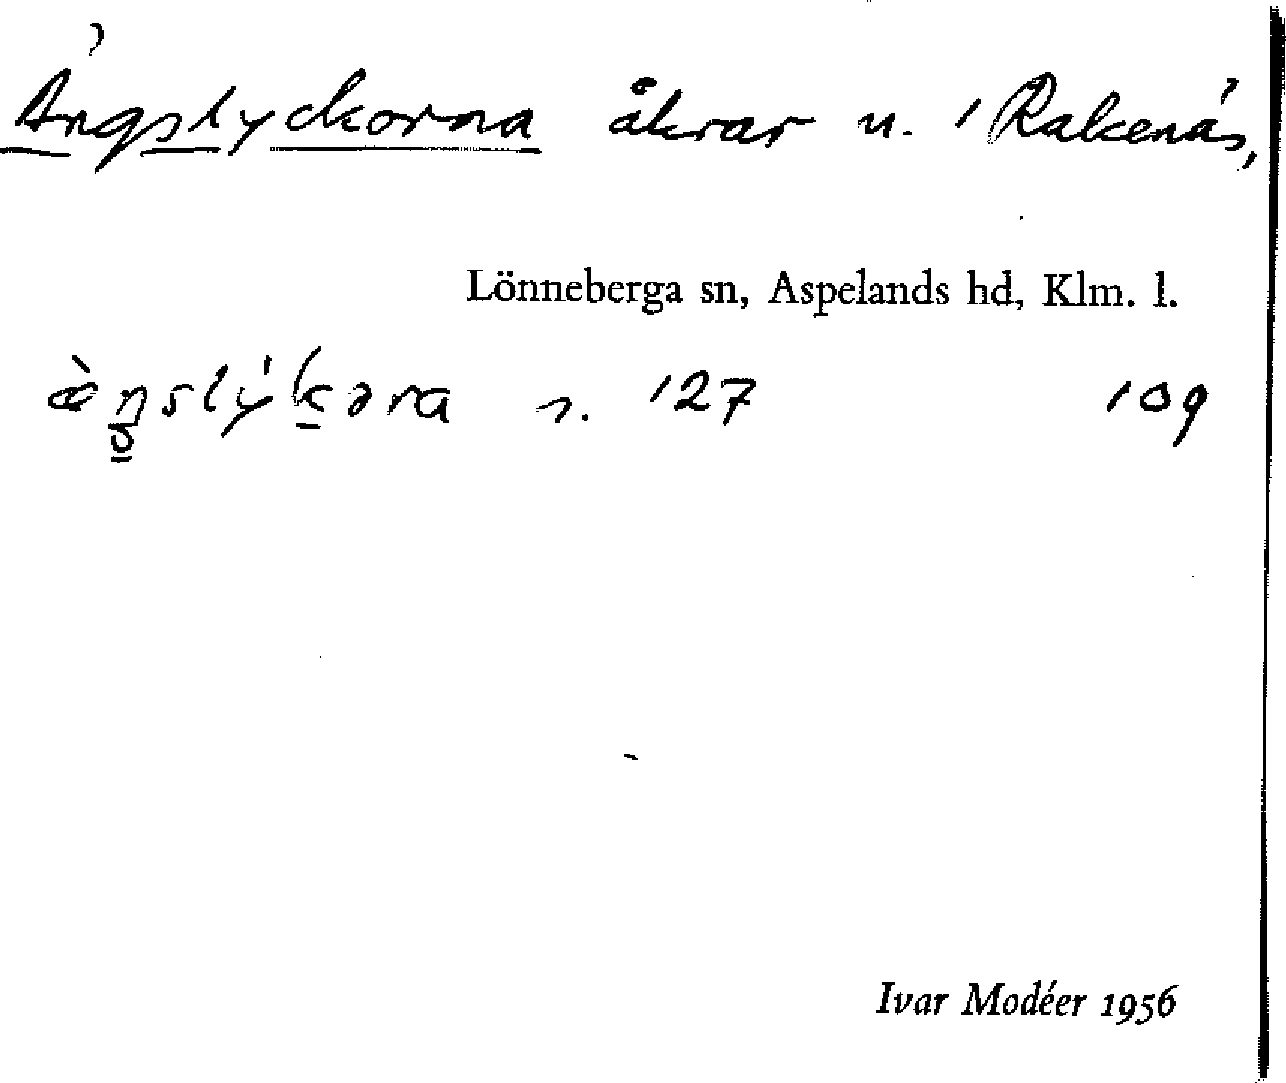 Ängslyckorna åkrar u. Rakenäs,
Lönneberga sn, Aspelands hd, Klm. l.
s. 127 109
Ivar Modéer 1956